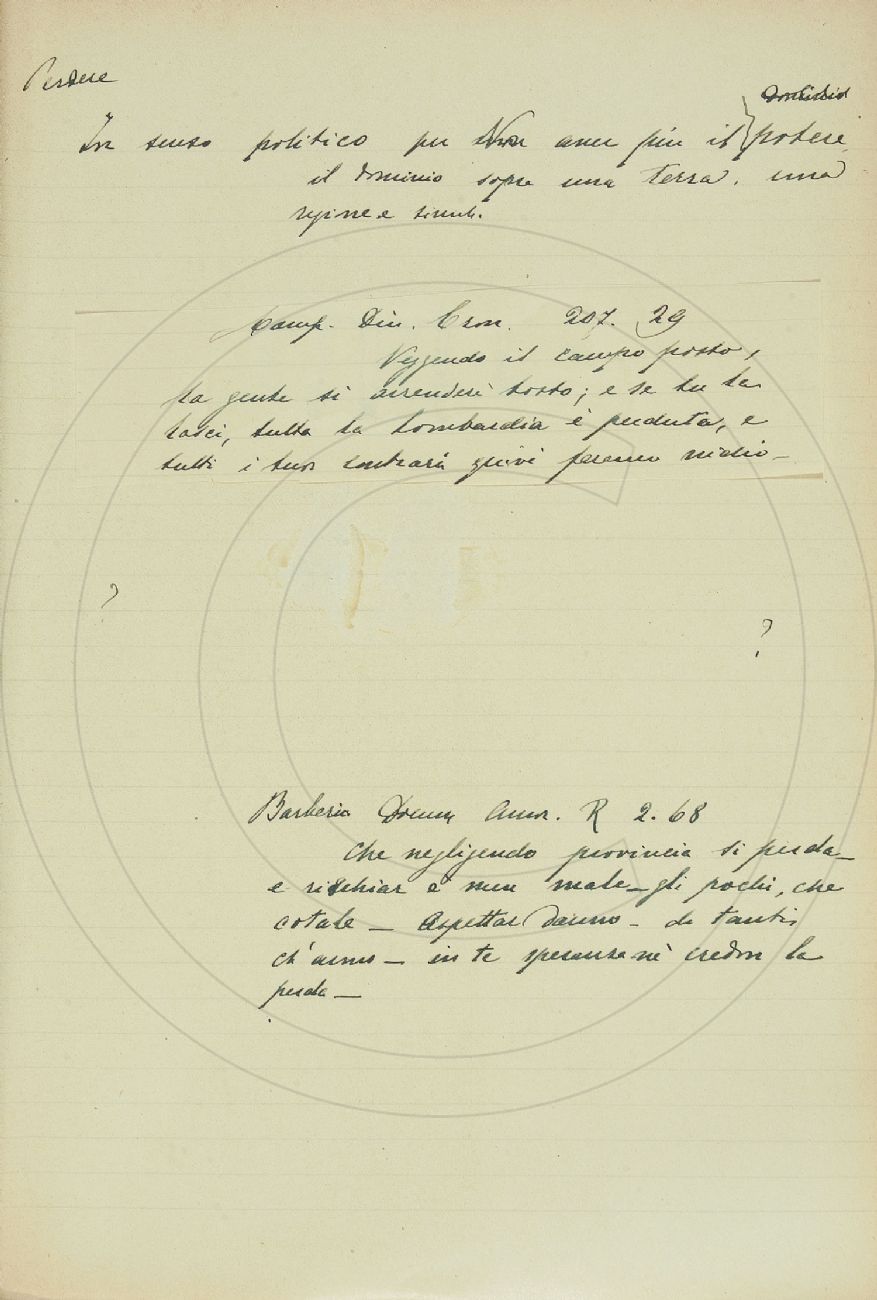 Perdere
In senso politico per Non aver più il potere,
il dominio sopra una terra, una
regione e simili.
Comp. Din. Cron. 207. 29
Veggendo il campo posto,
la gente si arrenderè tosto; e se tu la
lasci, tutta la Lombardia è perduta, e
tutti i tuoi contrarii quivi faranno nidio —
?
?
Barberin Docum Amor. R 2. 68
Che negligendo provincia si perda —
e rischiar è men male — gli pochi, che
cotale — Aspettar danno — di tanti,
ch'anno — in te speranza nè credon la
perda —